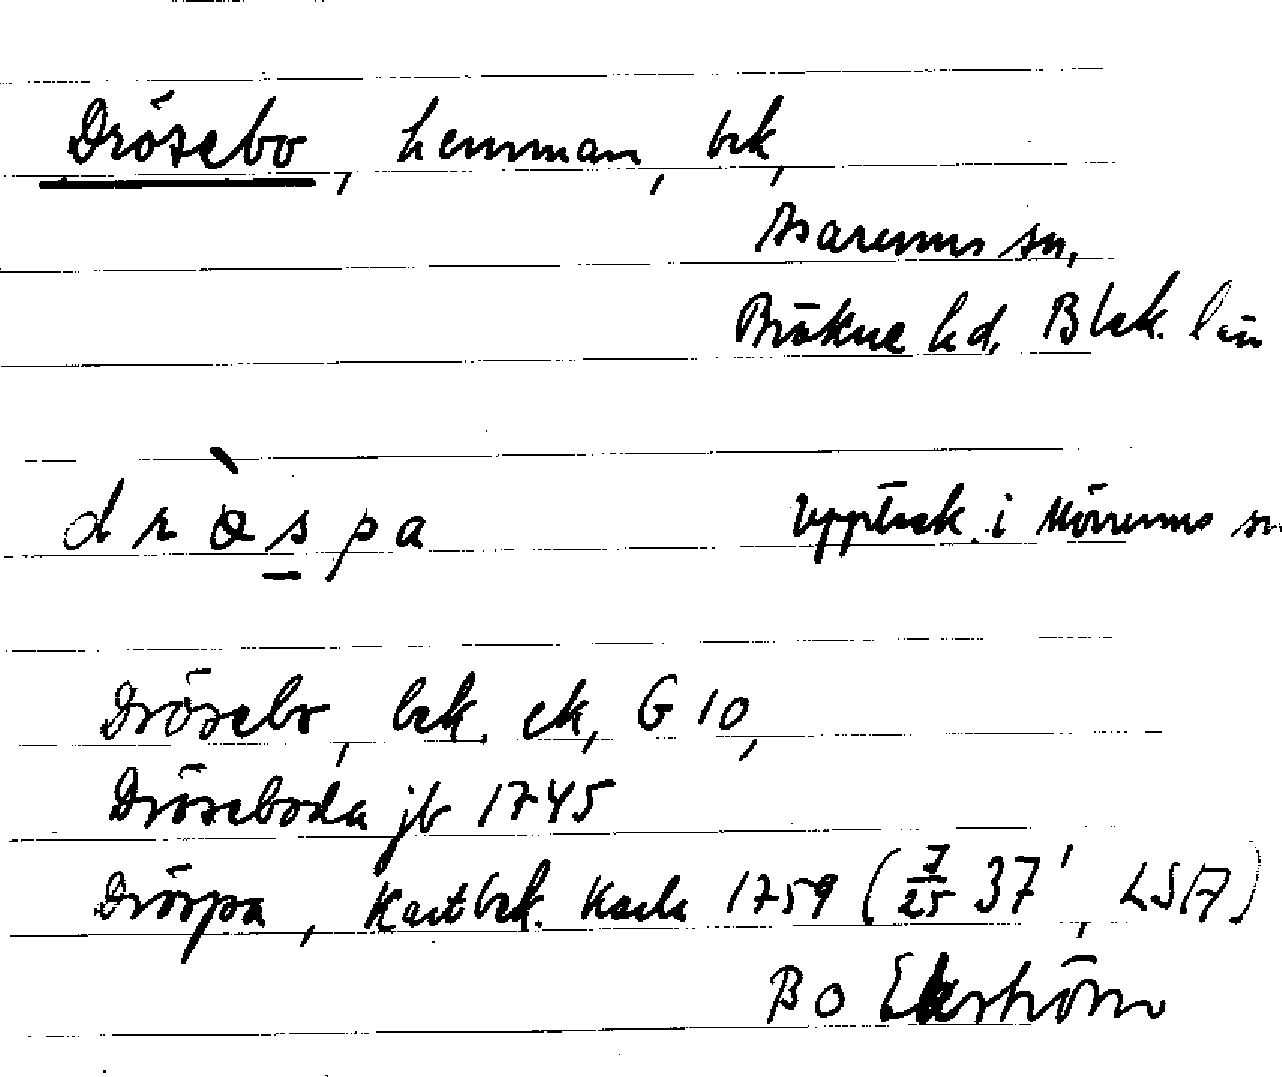 Drösebo, hemman, bek,
Asarums sn,
Bräkne hd, Blek. län
dr&#x251;̀spa
Uppteck. i Mörrums sn
Drösebo, bek. ek, G 10,
Dröseboda jb 1745
Dröspa, Kartbek. Karta 1759 (7/25 37', LSA)
B O Ekström